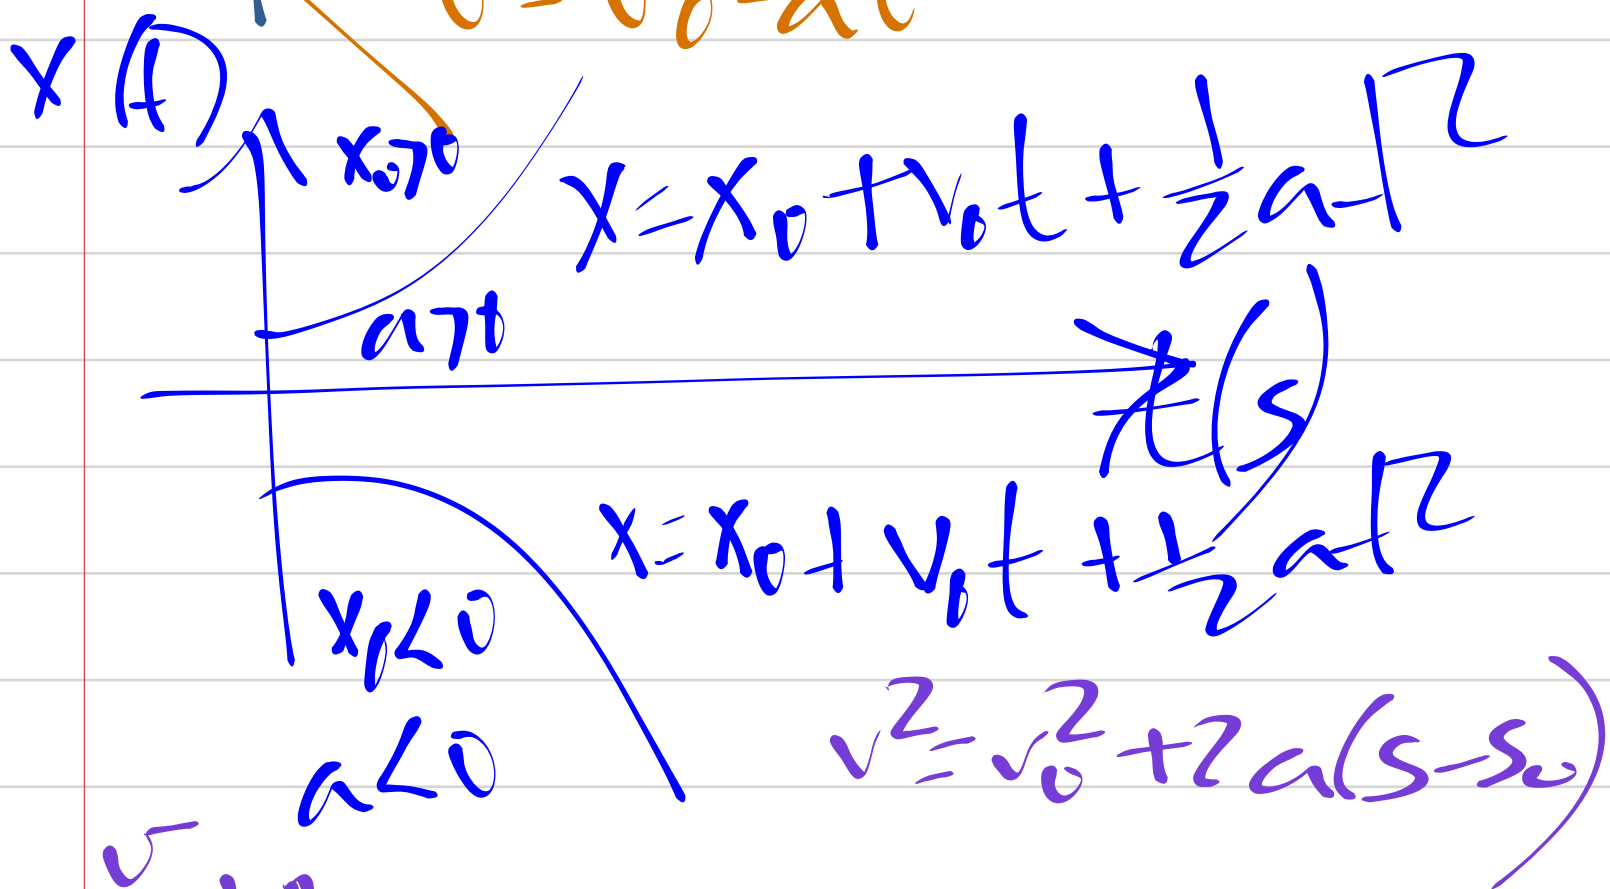 v=v₀-at
x(t)
x₀>0
x=x₀+v₀t+½at²
a>0
t(s)
x=x₀+v₀t+½at²
x₀<0
a<0
v²=v₀²+2a(s-s₀)
v